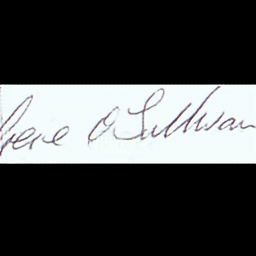 Gene O'Sullivan